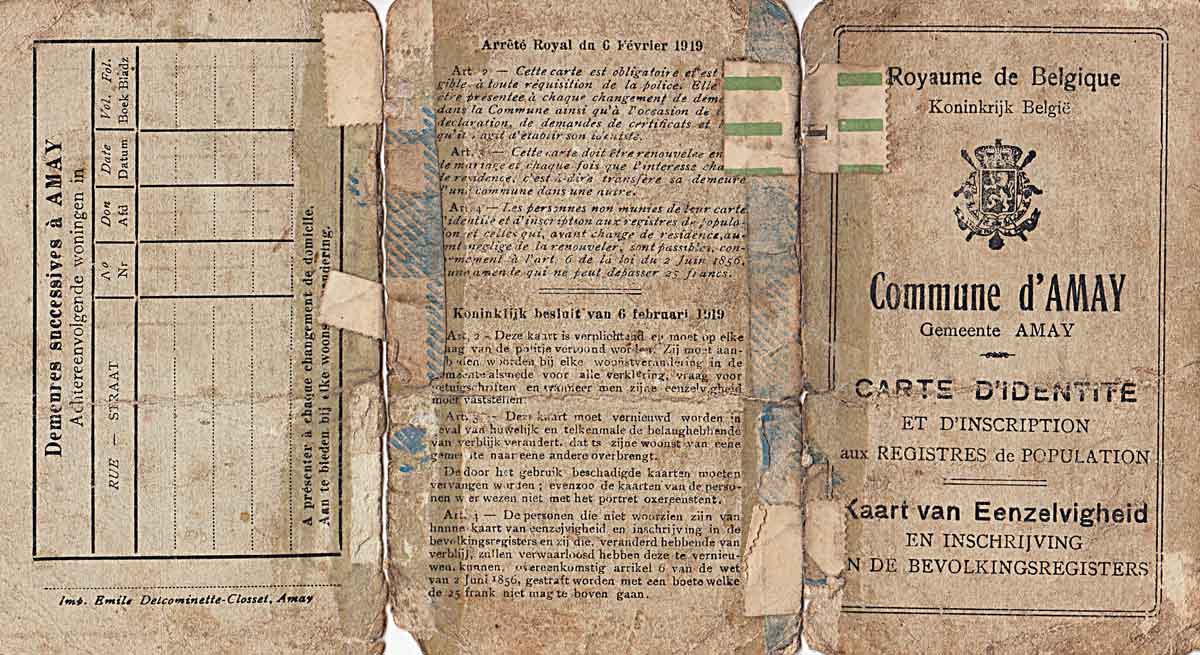 Demeures successives à AMAY
Achtereenvolgende woningen in
RUE — STRAAT
Nr
Don
Afd
Date
Datum
Vol. Fol.
Boek Bladz
A présenter à chaque changement de domicile.
Aan te bieden bij elke
Imp. Emile Delcominette-Closset, Amay
Arrêté Royal du 6 Février 1919
Art. 2 — Cette carte est obligatoire et est
gible à toute requisition de la police. Elle
être présentée à chaque changement de
dans la Commune ainsi qu'à l'occasion de
déclaration, de demandes de certificats et
d'établir son identité.
Art. — Cette carte doit être renouvelée en
de mariage et chaque fois que l'interesse
de residence, c'est à dire transfère sa demeure
d'une commune dans une autre.
Art. 4 — Les personnes non munies de leur carte
d'identité et d'inscription aux registres de
et celles qui, ayant change de residence,
neglige de la renouveler, sont passibles,
à l'art. 6 de la loi du 2 Juin 1856,
une amende qui ne peut depasser 25 francs.
Koninklijk besluit van 6 februari 1919
Art. 2 - Deze kaart is verplichtend en moet op elke
van de politie vertoond worden. Zij moet
worden bij elke woonstverandering in de
alsmede voor alle verklering, vraag voor
en wanneer men zijne eenzelvigheid
moet vaststellen.
Art. — Deze kaart moet vernieuwd worden in
geval van huwelijk en telkenmale de belanghebbende
van verblijk verandert, dat is zijne woonst van eene
gemeente naar eene andere overbrengt.
De door het gebruik beschadigde kaarten moeten
vervangen worden ; evenzoo de kaarten van de
wier wezen niet met het portret
Art. — De personen die niet woorzien zijn van
hunne kaart van eenzelvigheid en inschrijving in de
bevolkingsregisters en zij die, veranderd hebbende van
verblijf, zullen verwaarloosd hebben deze te
kunnen, overeenkomstig artikel 6 van de wet
van 2 Juni 1856, gestraft worden met een boete welke
de 25 frank niet mag te boven gaan.
Royaume de Belgique
Koninkrijk België
Commune d'AMAY
Gemeente AMAY
CARTE D'IDENTITÉ
ET D'INSCRIPTION
aux REGISTRES de POPULATION
Kaart van Eenzelvigheid
EN INSCHRIJVING
IN DE BEVOLKINGSREGISTERS